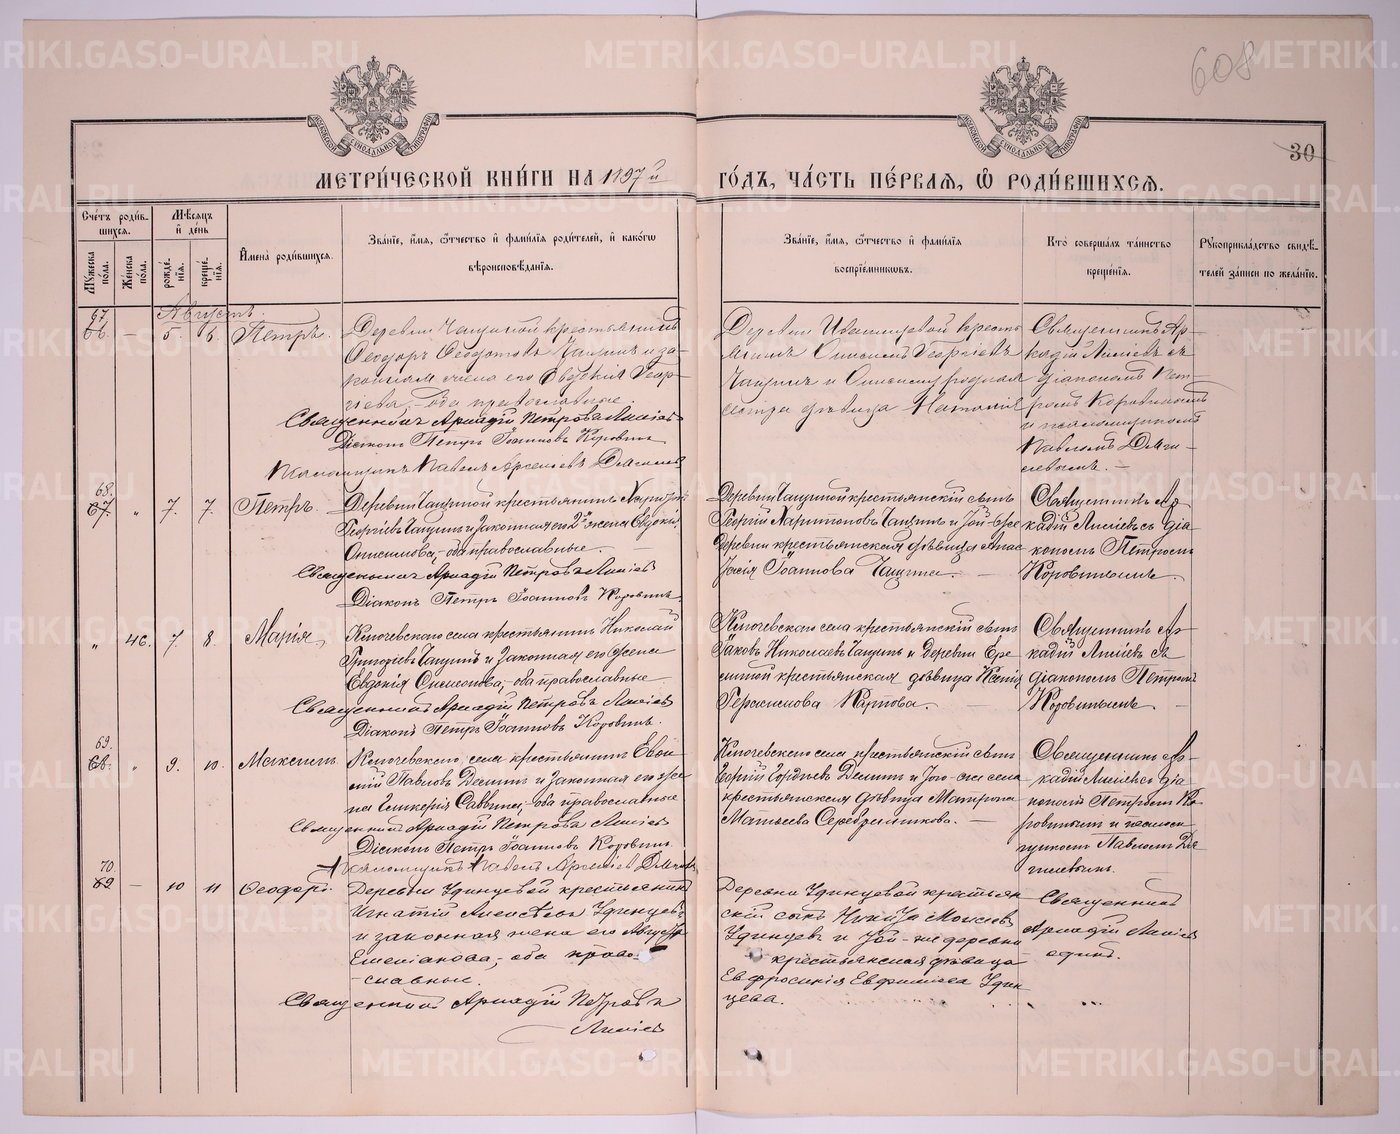 608
30
МЕТРИ́ЧЕСКОЙ КНИ́ГИ НА 1897 й
ГО́ДЪ, ЧА́СТЬ ПЕ́РВАЯ, Ѿ РОДИ́ВШИХСЯ.
Сче́тъ роди́в-
шихся.
Му́жеска пола.
Же́нска пола.
Мѣсяцъ и де́нь
рожде́нїя.
креще́нїя.
И҆мена̀ роди́вшихся.
Зва́нїе, и҆́мя, ѻ҆́тчество и҆ фами́лїя роди́телей, и҆ како́гѡ
вѣроисповѣ́данїя.
Зва́нїе, и҆́мя, ѻ҆́тчество и҆ фами́лїя
воспрїе́мниковъ.
Кто̀ соверша́лъ та́инство
креще́нїя.
Рꙋкоприкла́дство свидѣ́-
телей за́писи по жела́нїю.
Августъ.
67.
66. — 5. 6. Петръ.
Деревни Чащиной крестьянинъ
Ѳеодоръ Ѳеодотовъ Чащинъ и за-
конная жена его Евдокія Геор-
гіева, оба православные.
Священникъ Аркадій Петровъ Лисіевъ
Діаконъ Петръ Іоанновъ Коровинъ
Псаломщикъ Павелъ Арсеніевъ
Деревни
Онисимъ Георгіевъ
Чащинъ и
сестра дѣвица Наталія
Священникъ Ар-
кадій Лисіевъ съ
діакономъ Пет-
ромъ Коровинымъ
и псаломщикомъ
Павломъ
68.
67. „ 7. 7. Петръ.
Деревни Чащиной крестьянинъ Харитонъ
Георгіевъ Чащинъ и законная его 2я жена Евдокія
Онисимова, оба православные. —
Священникъ Аркадій Петровъ Лисіевъ
Діаконъ Петръ Іоанновъ Коровинъ
Деревни Чащиной крестьянскій сынъ
Георгій Харитоновъ Чащинъ и той-же
деревни крестьянская дѣвица Анас
тасія Іоаннова Чащина. —
Священникъ Ар
кадій Лисіевъ съ діа
кономъ Петромъ
Коровинымъ.
„ 46. 7. 8. Марія
Ключевскаго села крестьянинъ Николай
Григоріевъ Чащинъ и законная его жена
Евдокія Симеонова, оба православные.
Священникъ Аркадій Петровъ Лисіевъ
Діаконъ Петръ Іоанновъ Коровинъ.
Ключевскаго села крестьянскій сынъ
Іаковъ Николаевъ Чащинъ и деревни Ере
миной крестьянская дѣвица Ксенія
Герасимова Карпова. —
Священникъ Ар
кадій Лисіевъ съ
діакономъ Петромъ
Коровинымъ. —
69.
68. „ 9. 10. Максимъ.
Ключевскаго села крестьянинъ
Павловъ Деминъ и законная его же
на Гликерія Саввина, оба православные
Священникъ Аркадій Петровъ Лисіевъ
Діаконъ Петръ Іоанновъ Коровинъ.
Псаломщикъ Павелъ Арсеніевъ
Ключевскаго села крестьянскій сынъ
Георгій Гордѣевъ Деминъ и того-же села
крестьянская дѣвица Матрона
Матѳеева Серебренникова. —
Священникъ Ар-
кадій Лисіевъ съ діа
кономъ Петромъ Ко
ровинымъ и псалом
щикомъ Павломъ
70.
69 — 10 11 Ѳеодоръ.
Деревни Удинцевой крестьянинъ
Игнатій Алексѣевъ Удинцевъ
и законная жена его
Емеліанова, оба право
-славные.
Священникъ Аркадій Петровъ
Лисіевъ
Деревни Удинцевой крестьян
скій сынъ Никита Моисеевъ
Удинцевъ и той-же деревни
крестьянская дѣвица
Евфросинія Евфиміева Удин
цева.
Священникъ
Аркадій Лисіевъ
одинъ.
METRIKI.GASO-URAL.RU